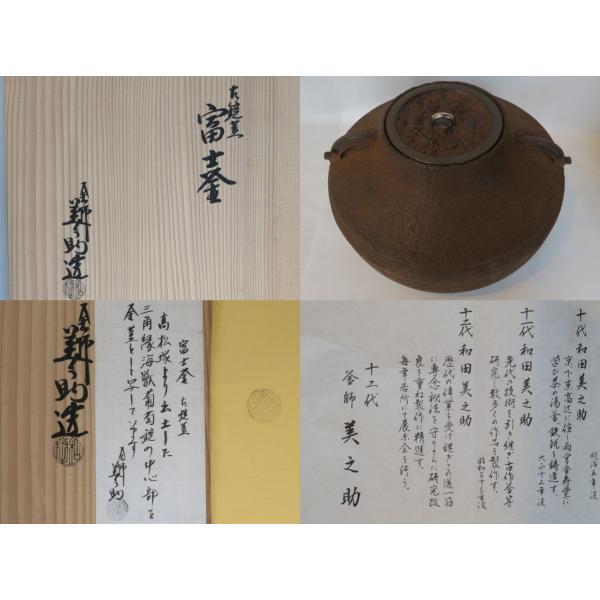 古鏡蓋
富士釜
釜師
美之助造
釜師
美之助造
富士釜 古鏡蓋
高松塚より出土した
三角縁海獣葡萄鏡の中心部を
釜蓋として写して居ます
美之助
十代 和田美之助
明治五年没
京、下京高辻に住し両宮金寿堂に
学び茶の湯釜、鉄鋺を鋳造す。
大正十二年没
十一代 和田美之助
先代の技術を引き継ぎ古作釜等
研究し数多くの作品を製作す。
昭和三十七年没
十二代 和田美之助
歴代の偉業を受け継ぎこの道一筋
に専念秘法を守りさらに研究改
良を重ね製作に精進す。
毎年各所にて展示会を行う。
十二代
釜師 美之助